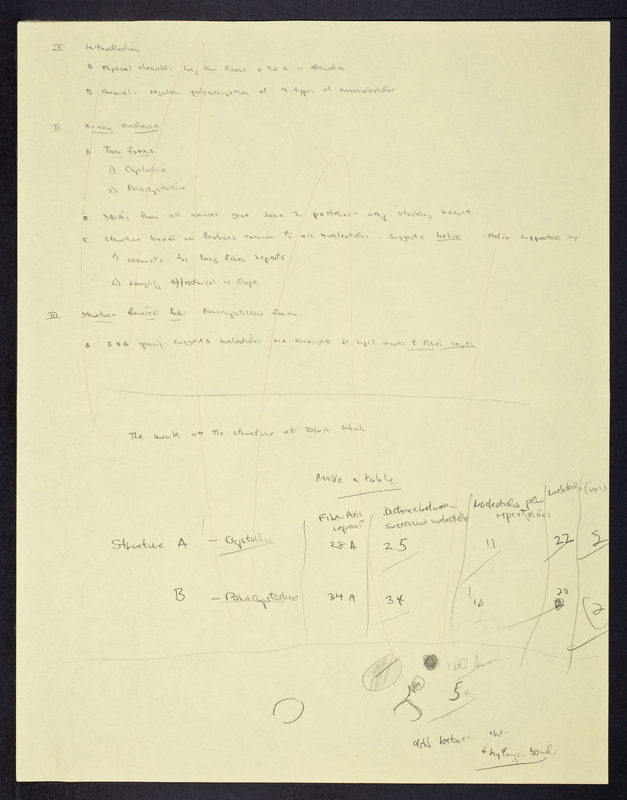 I Introduction
A Physical chemical - long thin fibers
B Chemical - regular polymerization of 4 types of mononucleotides
II X-ray evidence
A Two forms
1) Crystalline
2) Paracrystalline
B. DNA's from all sources give same 2 patterns - very striking result.
C Structure based on features common to all nucleotides. Suggests helix Helix supported by
1) accounts for long fiber repeats
2) roughly
III Structure for Paracrystalline form.
A. 3.4 A spacing suggests nucleotides are arranged at right angles fiber length
The work on the structure of DNA which
Make a table
Fiber Axis repeat Distance between successive nucleotides Nucleotides per repeat Nucleotides
Structure A - Crystalline 28 A 2.5 11 22 2
B - Paracrystalline 34 A 3.4 10 20 2
5
between
hydrogen bond